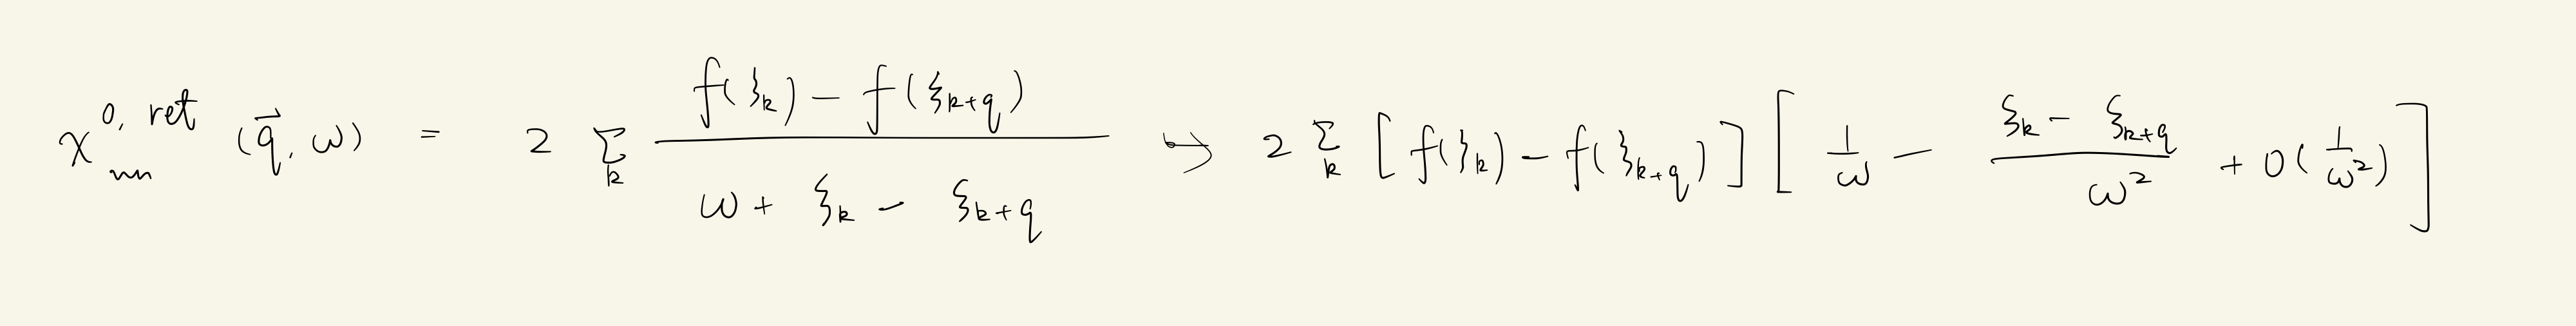 χ_{nn}^{0, ret} (\vec{q}, ω) = 2 Σ_k \frac{f(ξ_k) - f(ξ_{k+q})}{ω + ξ_k - ξ_{k+q}} ↪ 2 Σ_k [ f(ξ_k) - f(ξ_{k+q}) ] [ \frac{1}{ω} - \frac{ξ_k - ξ_{k+q}}{ω^2} + O(\frac{1}{ω^2}) ]